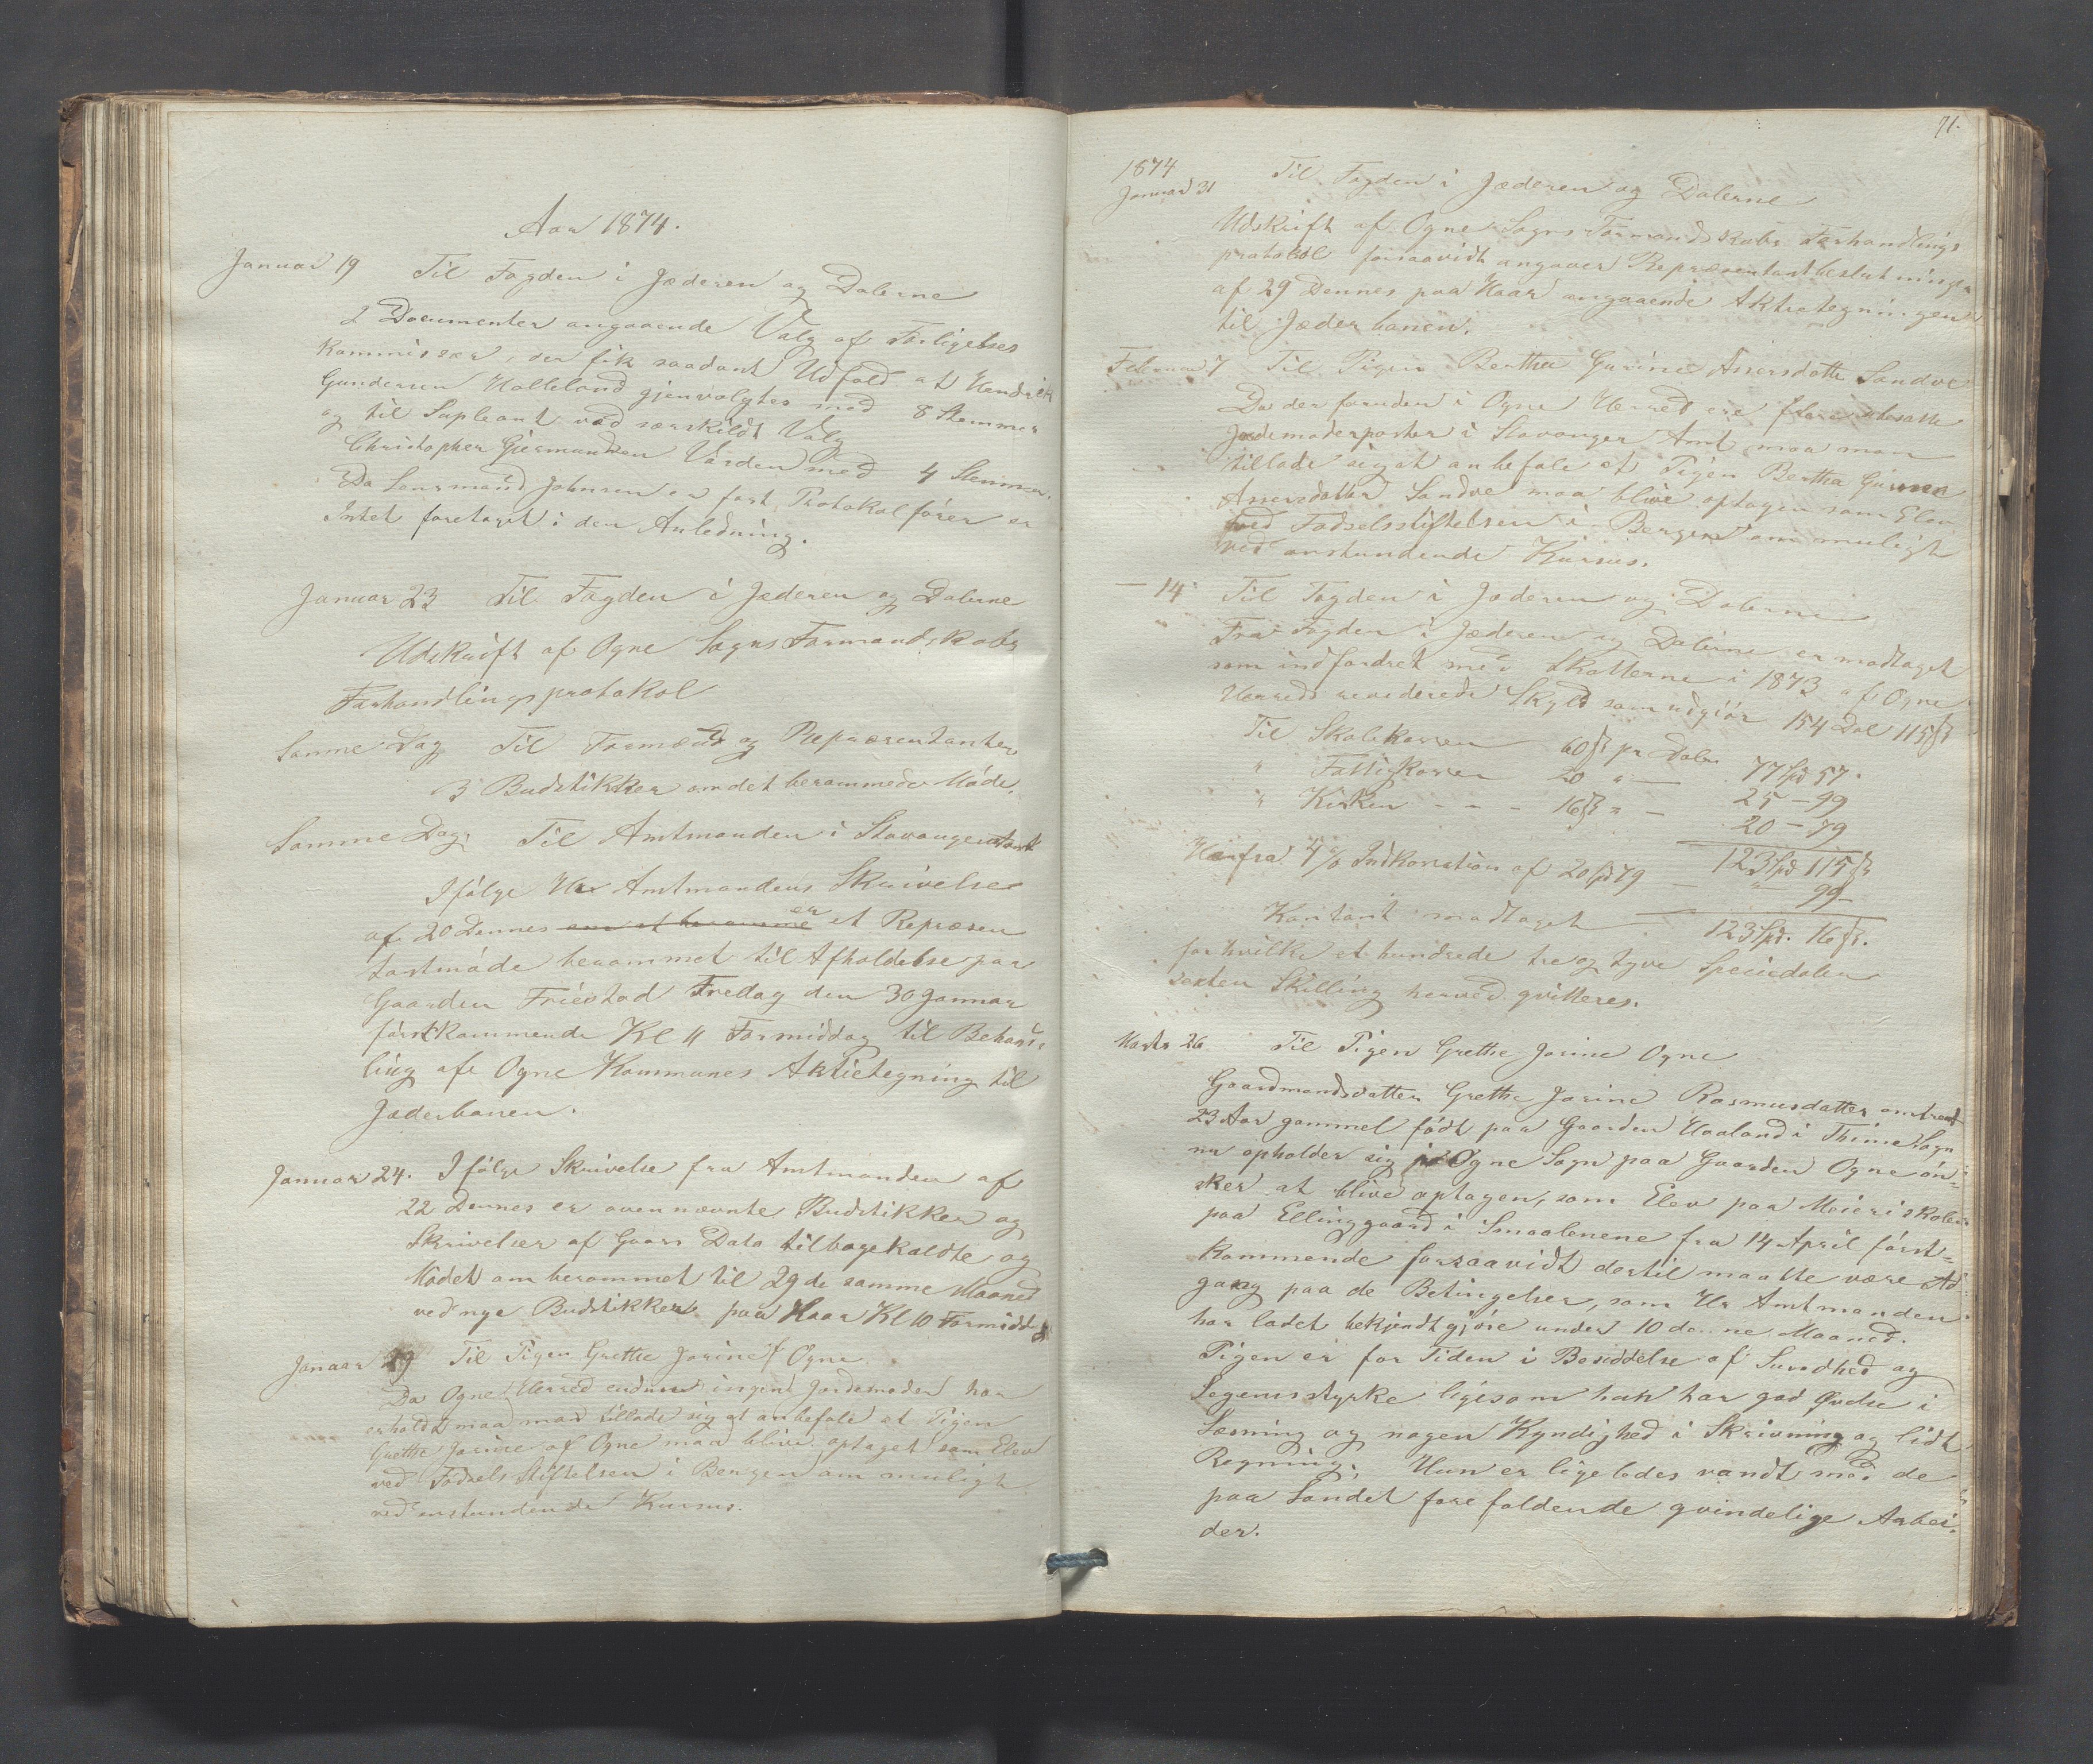 Aar 1874.
Januar 19 Til Fogden i Jæderen og Dalerne
2 Documenter angaaende Valg af Forligelses
Kommissær, der fik saadant Udfald at Hendrik
Gundersen Holleland gjenvalgtes med 8 Stemmer
og til Supleant ved særskildt Valg
Christopher Giermundsen Varden med 4 Stemmer.
Da Lensmand Johnsen er fast Protokolfører er
Intet foretaget i den Anledning.
Januar 23 Til Fogden i Jæderen og Dalerne
Udskrift af Ogne Sogns Formandskabs
Forhandlingsprotokol
Samme Dag Til Formænd og Repræsentanter
3 Budstikker om det berammede Møde.
Samme Dag Til Amtmanden i Stavanger Amt
Ifølge Hr Amtmandens Skrivelse
af 20 Dennes om at beramme er et Repræsen
tantmøde berammet til Afholdelse paa
Gaarden Friestad Fredag den 30 Januar
førstkommende Kl 11 Formiddag til Behand-
ling af Ogne Kommunes Aktietegning til
Jæderbanen.
Januar 24. Ifølge Skrivelse fra Amtmanden af
22 Dennes er ovennævnte Budstikker og
Skrivelser af Gaars Dato tilbagekaldte og
Mødet om berammet til 29de samme Maaned
ved nye Budstikker paa Haar Kl 10 Formiddg
Januar 29 Til Pigen Grethe Jorine Ogne
Da Ogne Herred endnu ingen Jordemoder har
erholdt maa man tillade sig at anbefale at Pigen
Grethe Jorine af Ogne maa blive optaget som Elev
ved Fødsels Stiftelsen i Bergen om muligt
ved anstundende Kursus.
71.
1874
Januar 31 Til Fogden i Jæderen og Dalerne
Udskrift af Ogne Sogns Formandskabs Forhandlings
protokol forsaavidt angaaer Repræsentantbeslutningen
af 29 Dennes paa Haar angaaende Aktietegningen
til Jæderbanen.
Februar 7 Til Pigen Bertha Gurine Assersdatter Sandve
Da der foruden i Ogne Herred ere flere ubesatte
Jordemoderposter i Stavanger Amt maa man
tillade sig at anbefale at Pigen Bertha Gurine
Assersdatter Sandve maa blive optagen som Elev
ved Fødselsstiftelsen i Bergen om muligt
ved anstundende Kursus.
— 14 Til Fogden i Jæderen og Dalerne
Fra Fogden i Jæderen og Dalerne er modtaget
som indfordret med Skatterne i 1873 af Ogne
Herreds reviderede Skyld som udgiør 154 Dal 115 ß
Til Skolekassen 60 ß pr Daler 77 Spd 57.
" Fattigkassen 20 " — 25 – 99
" Kirken - - - 16 ß " — 20 – 79
123 Spd 115 ß
Herfra 4% Indkassation af 20 Spd 79 — " — 99
Kontant modtaget 123 Spd. 16 ß.
for hvilke et hundrede tre og tyve Speciedaler
sexten Skilling herved qvitteres.
Marts 26 Til Pigen Grethe Jorine Ogne
Gaardmandsdatter Grethe Jorine Rasmusdatter omtrent
23 Aar gammel født paa Gaarden Haaland i Thime Sogn
nu opholder sig i Ogne Sogn paa Gaarden Ogne øn-
sker at blive optagen, som Elev paa Meieriskolen
paa Ellinggaard i Smaalenene fra 14 April først-
kommende forsaavidt dertil maatte være Ad-
gang paa de Betingelser, som Hr Amtmanden
har ladet bekjendtgjøre under 10 denne Maaned.
Pigen er for Tiden i Besiddelse af Sundhed og
Legemsstyrke ligesom hun har god Øvelse i
Læsning og nogen Kyndighed i Skrivning og lidt
Regning. Hun er ligeledes vandt med de
paa Landet forefaldende qvindelige Arbei-
der.